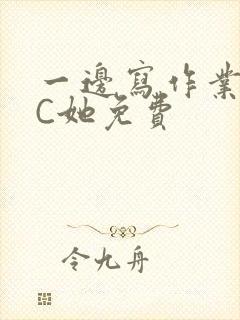 一邊寫作業
C她免費
令九舟